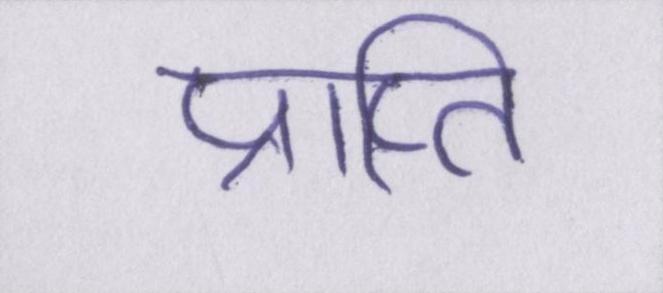 प्राप्ति